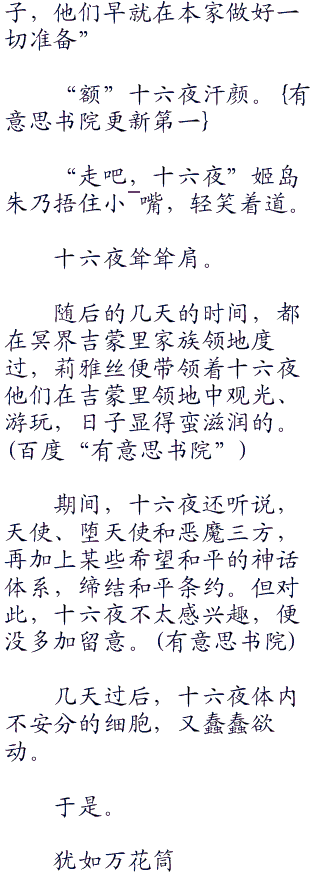 子，他们早就在本家做好一
切准备”
“额”十六夜汗颜。{有
意思书院更新第一}
“走吧，十六夜”姬岛
朱乃捂住小¯嘴，轻笑着道。
十六夜耸耸肩。
随后的几天的时间，都
在冥界吉蒙里家族领地度
过，莉雅丝便带领着十六夜
他们在吉蒙里领地中观光、
游玩，日子显得蛮滋润的。
(百度“有意思书院”)
期间，十六夜还听说，
天使、堕天使和恶魔三方，
再加上某些希望和平的神话
体系，缔结和平条约。但对
此，十六夜不太感兴趣，便
没多加留意。(有意思书院)
几天过后，十六夜体内
不安分的细胞，又蠢蠢欲
动。
于是。
犹如万花筒